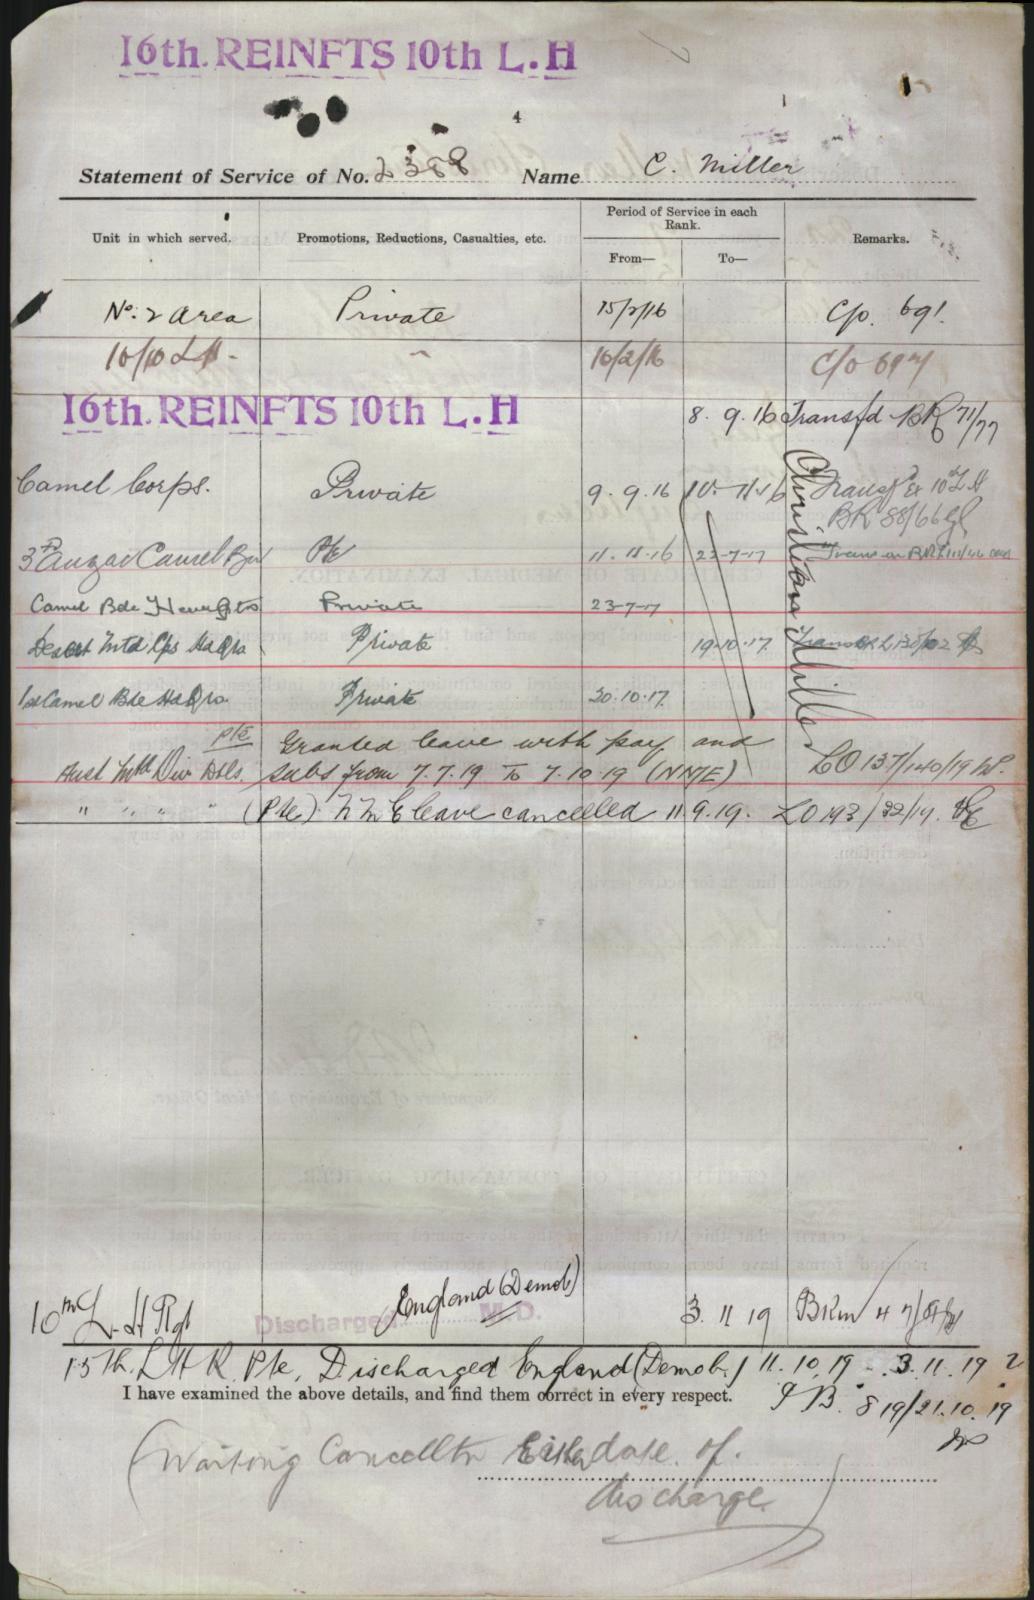 16th. REINFTS 10th L.H
4
Statement of Service of No. 2388 Name C. Miller
Unit in which served. Promotions, Reductions, Casualties, etc. Period of Service in each Rank. Remarks.
From— To—
No. 2 Area Private 15/2/16 C/o. 691.
10/10 LH. " 16/2/16 C/o 69
16th. REINFTS 10th L.H 8. 9. 16 Transfd BR 71/77
Camel Corps. Private 9. 9. 16 10. 11. 16 Transf 10th L H
BR 88/66
3rd Anzac Camel Bn Pte 11. 11. 16 22-7-17
Camel Bde Private 23-7-17
Desert Mtd Cps Hd Qrs Private 19-10-17
1st Camel Bde Hd Qrs. Private 20.10.17
Christian Miller
Pte Granted leave with pay and
Aust Mtd Div Dtls. subs from 7.7.19 To 7.10.19 (NME) LO 137/140/19
" " " " (Pte) NME leave cancelled 11.9.19. LO 193/32/19.
10th L. H Rgt Discharged England (Demob) M.D. 3 11 19
15th. L H R Pte, Discharged England (Demob.) 11. 10. 19 - 3. 11. 19
I have examined the above details, and find them correct in every respect. 819/21.10.19
(Waiting date of
discharge)